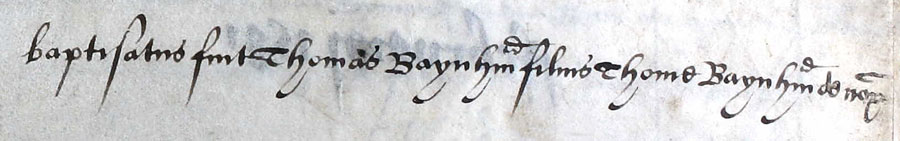 baptisatus fuit Thomas Baynhmd filius Thome Baynhmd de